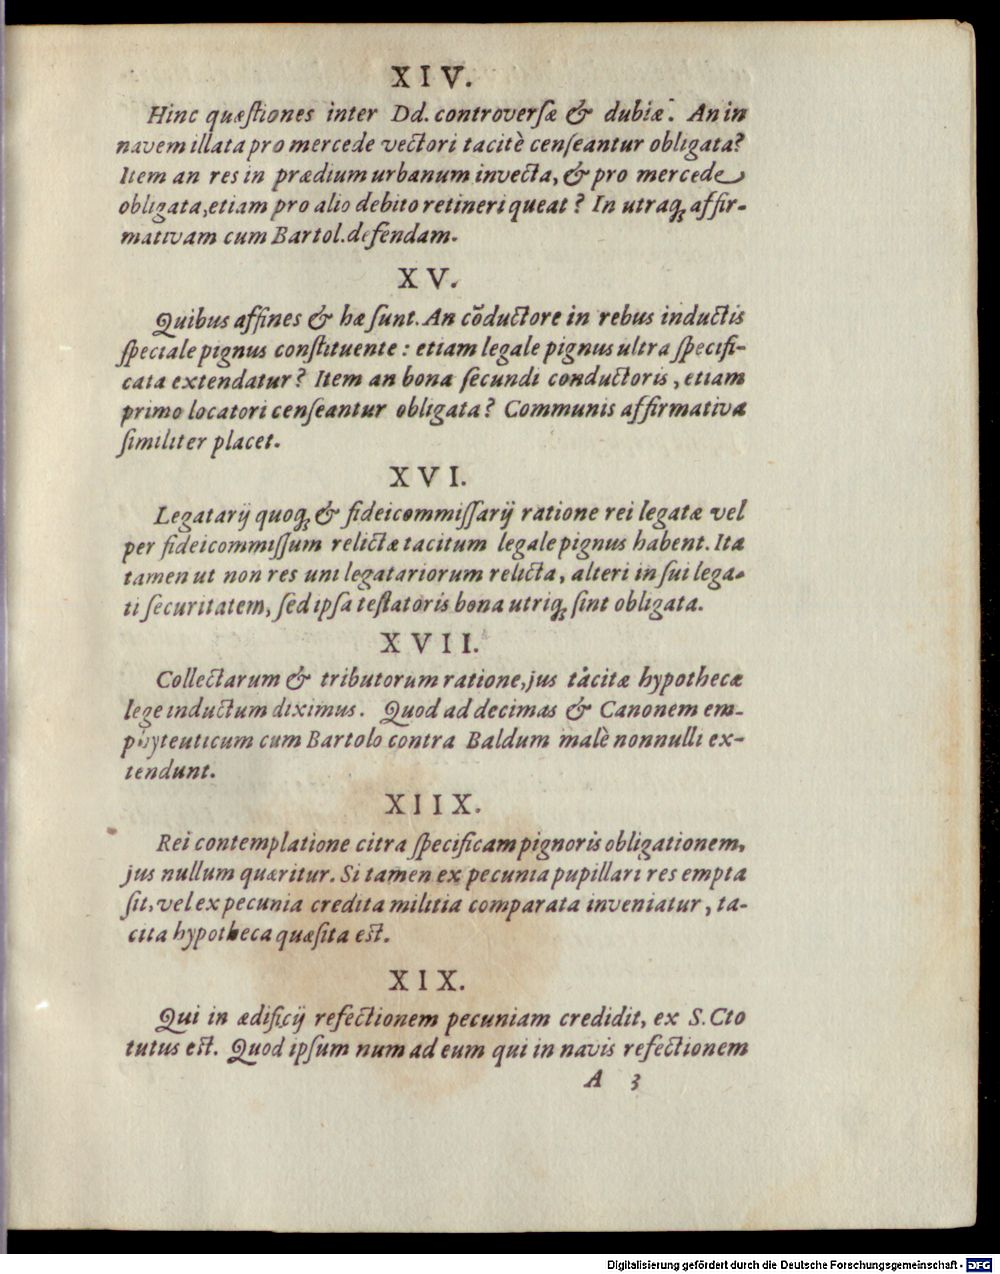 XIV.
Hinc quæſtiones inter Dd. controverſæ & dubiæ. An in
navem illata pro mercede vectori tacitè cenſeantur obligata?
Item an res in prædium urbanum invecta, & pro mercede
obligata, etiam pro alio debito retineri queat? In utraq; affir-
mativam cum Bartol. defendam.
XV.
Quibus affines & hæ ſunt. An cōductore in rebus inductis
ſpeciale pignus conſtituente: etiam legale pignus ultra ſpecifi-
cata extendatur? Item an bona ſecundi conductoris, etiam
primo locatori cenſeantur obligata? Communis affirmativa
ſimiliter placet.
XVI.
Legatarij quoq; & fideicommiſſarij ratione rei legatæ vel
per fideicommiſſum relictæ tacitum legale pignus habent. Ita
tamen ut non res uni legatariorum relicta, alteri in ſui lega-
ti ſecuritatem, ſed ipſa teſtatoris bona utriq; ſint obligata.
XVII.
Collectarum & tributorum ratione, jus tacitæ hypothecæ
lege inductum diximus. Quod ad decimas & Canonem em-
phyteuticum cum Bartolo contra Baldum malè nonnulli ex-
tendunt.
XIIX.
Rei contemplatione citra ſpecificam pignoris obligationem,
jus nullum quæritur. Si tamen ex pecunia pupillari res empta
ſit, vel ex pecunia credita militia comparata inveniatur, ta-
cita hypotheca quæſita eſt.
XIX.
Qui in ædificij refectionem pecuniam credidit, ex S. Cto
tutus eſt. Quod ipſum num ad eum qui in navis refectionem
A 3
Digitalisierung gefördert durch die Deutsche Forschungsgemeinschaft - DFG